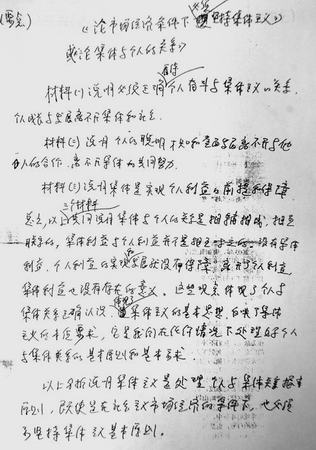 (要点)
《论市场经济条件下 坚持集体主义》
或论集体与个人的关系》
材料(一)说明 必须正确 个人奋斗与集体主义的关系,
个人成长与发展离不开集体和社会。
材料(二)说明 个人的聪明才智和 离不开与他
人的合作,离不开集体的共同努力。
材料(三)说明集体是实现个人利益的前提和保障
三个材料
总之,以上共同说明集体与个人的关系是相辅相成,相互
联系的,集体利益与个人利益并不是相互 没有集体
利益,个人利益的实现 就没有保障,离开个人利益,
集体利益也没有存在的意义。这些观点体现了个人与
集体关系正确认识, 集体主义的基本思想,反映了集体
主义的本质要求,它是我们在任何情况下处理好个人
与集体关系的基本原则和基本要求。
以上分析说明集体主义是处理个人与集体关系 根本
原则,既使是在社会主义市场经济的条件下,也必须
坚持集体主义基本原则。